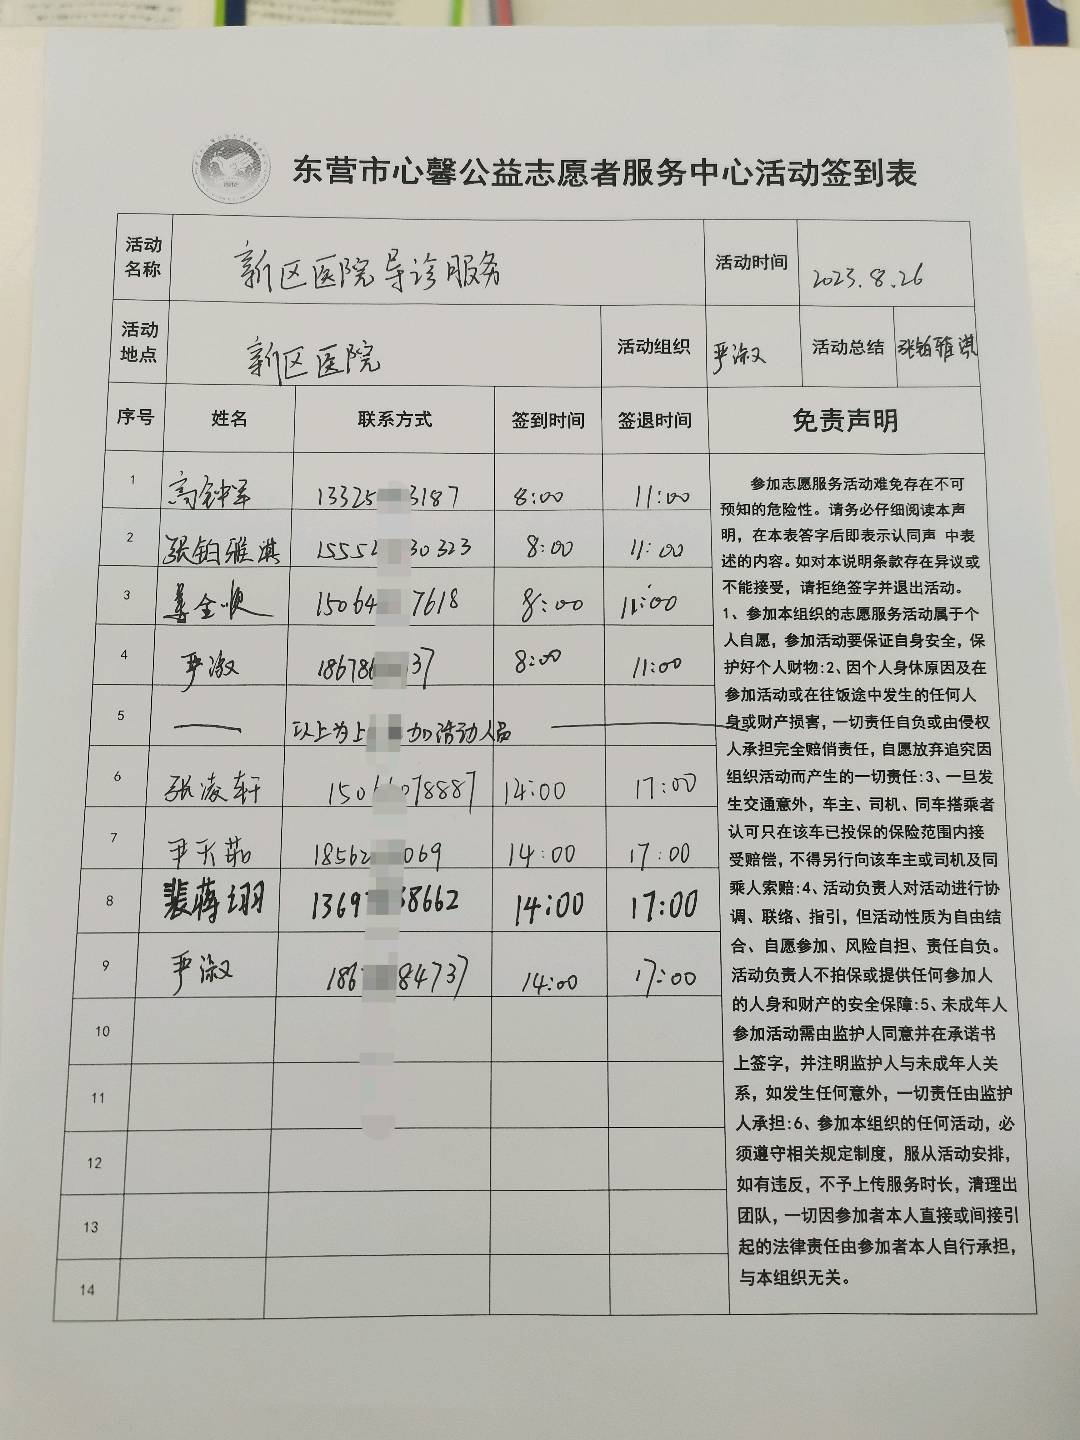 东营市心馨公益志愿者服务中心活动签到表
活动名称 新区医院导诊服务 活动时间 2023.8.26
活动地点 新区医院 活动组织 严淑 活动总结 张铂雅淇
序号 姓名 联系方式 签到时间 签退时间 免责声明
1 高钟军 13325 3187 8:00 11:00
2 张铂雅淇 15552 30323 8:00 11:00
3 姜全顺 15064 7618 8:00 11:00
4 严淑 18678 37 8:00 11:00
5 以上为上 加活动人员
6 张凌轩 150 078887 14:00 17:00
7 尹天茹 18562 069 14:00 17:00
8 裴蒋翊 1369 68662 14:00 17:00
9 严淑 186 84737 14:00 17:00
10
11
12
13
14
参加志愿服务活动难免存在不可
预知的危险性。请务必仔细阅读本声
明，在本表答字后即表示认同声 中表
述的内容。如对本说明条款存在异议或
不能接受，请拒绝签字并退出活动。
1、参加本组织的志愿服务活动属于个
人自愿，参加活动要保证自身安全，保
护好个人财物:2、因个人身休原因及在
参加活动或在往饭途中发生的任何人
身或财产损害，一切责任自负或由侵权
人承担完全赔俏责任，自愿放弃追究因
组织活动而产生的一切责任:3、一旦发
生交通意外，车主、司机、同车搭乘者
认可只在该车已投保的保险范围内接
受赔偿，不得另行向该车主或司机及同
乘人索赔:4、活动负责人对活动进行协
调、联络、指引，但活动性质为自由结
合、自愿参加、风险自担、责任自负。
活动负责人不拍保或提供任何参加人
的人身和财产的安全保障:5、未成年人
参加活动需由监护人同意并在承诺书
上签字，并注明监护人与未成年人关
系，如发生任何意外，一切责任由监护
人承担:6、参加本组织的任何活动，必
须遵守相关规定制度，服从活动安排，
如有违反，不予上传服务时长，清理出
团队，一切因参加者本人直接或间接引
起的法律责任由参加者本人自行承担，
与本组织无关。